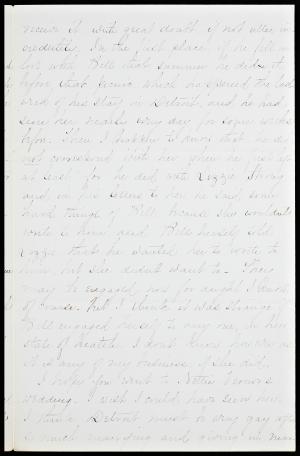 receive it with great doubt if not utter in
credulity. In the first place if he fell in
love with Bell that summer he did it
before that picnic which happened the last
of his stay in Detroit, and he had
seen her nearly every day for some weeks
before. Then I happen to know that he did
not correspond with her when he first
at least for he did with Lizzie Strong
and in his letters to her he said some
hard things of Bell because she wouldn't
write to him and Bell herself told
Lizzie that he wanted her to write to
him, but she didn't want to. They
may be engaged now for aught I know
of course, but I think it was strange if
Bell engaged herself to any one, in her
state of health. I don't know however as
it is any of my business if she did.
I hope you went to Nettie Brown's
wedding. I wish I could have seen her.
I think Detroit must be very gay after
so much marrying and giving in mar